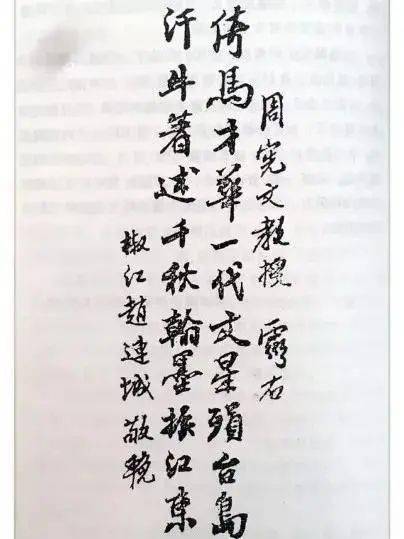 周宪文教授 靈右
倚馬才華一代文星殞台島
汗牛著述千秋翰墨振江東
椒江趙連城敬輓